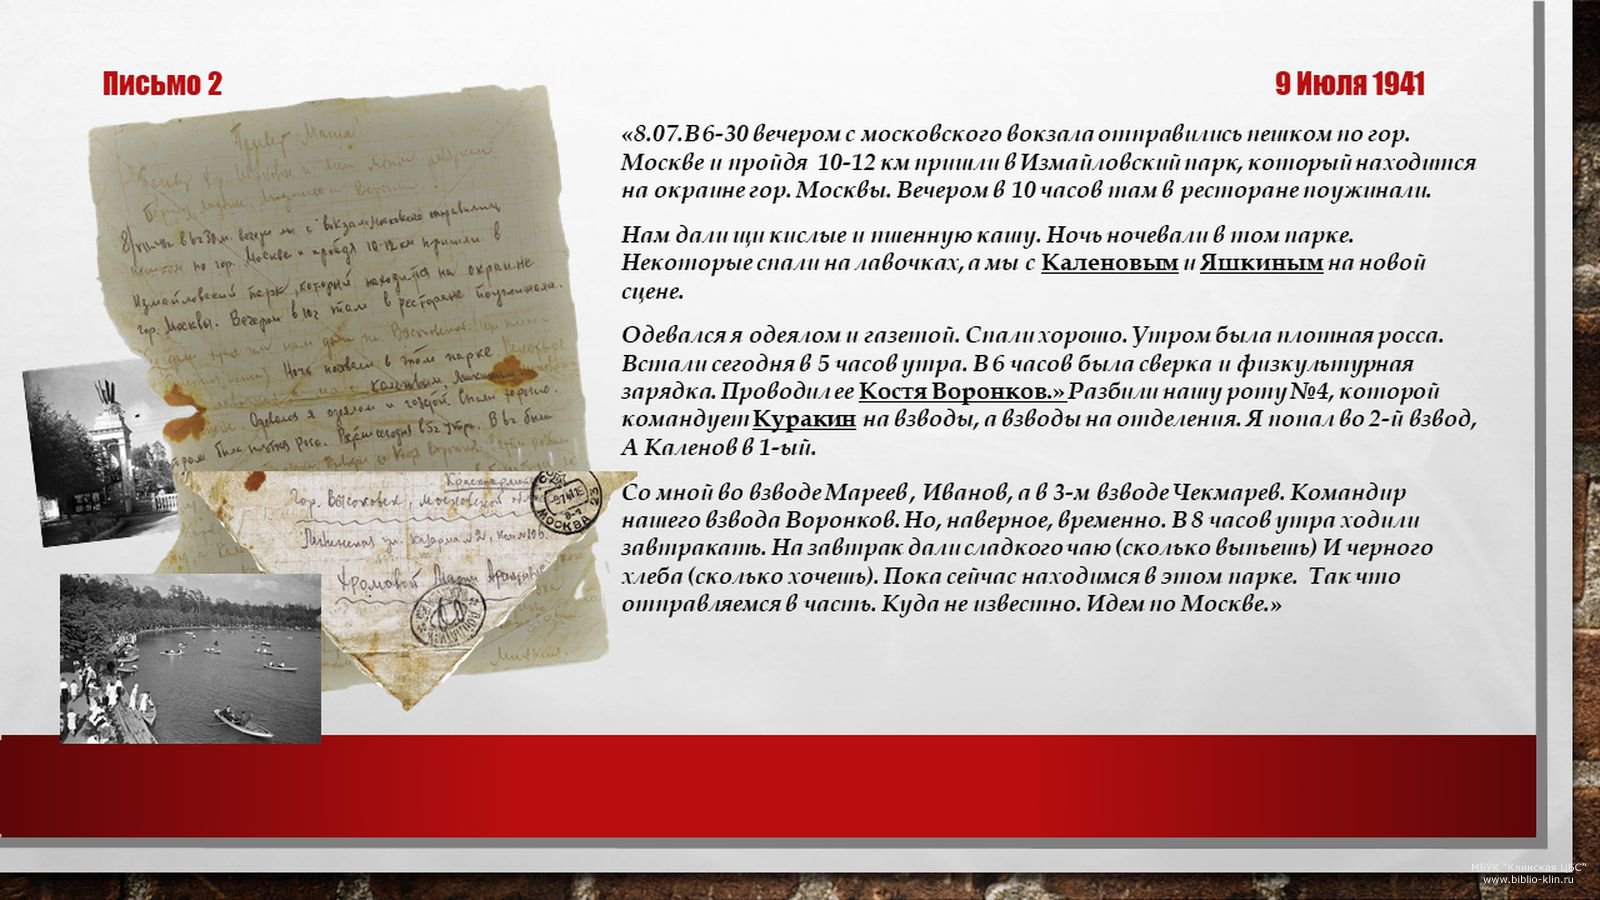 Письмо 2
9 Июля 1941
«8.07.В 6-30 вечером с московского вокзала отправились пешком по гор.
Москве и пройдя 10-12 км пришли в Измайловский парк, который находится
на окраине гор. Москвы. Вечером в 10 часов там в ресторане поужинали.
Нам дали щи кислые и пшенную кашу. Ночь ночевали в том парке.
Некоторые спали на лавочках, а мы с Каленовым и Яшкиным на новой
сцене.
Одевался я одеялом и газетой. Спали хорошо. Утром была плотная росса.
Встали сегодня в 5 часов утра. В 6 часов была сверка и физкультурная
зарядка. Проводил ее Костя Воронков.» Разбили нашу роту №4, которой
командует Куракин на взводы, а взводы на отделения. Я попал во 2-й взвод,
А Каленов в 1-ый.
Со мной во взводе Мареев, Иванов, а в 3-м взводе Чекмарев. Командир
нашего взвода Воронков. Но, наверное, временно. В 8 часов утра ходили
завтракать. На завтрак дали сладкого чаю (сколько выпьешь) И черного
хлеба (сколько хочешь). Пока сейчас находимся в этом парке. Так что
отправляемся в часть. Куда не известно. Идем по Москве.»
Привет Маша!
8/ вечером с вокзала отправились
пешком по гор. Москве и пройдя 10-12 км пришли в
Измайловский парк, который находится на окраине
гор. Москвы. Вечером в 10ч там в ресторане поужинали.
Ночь ночевали в этом парке
Каленовым, Яшкиным
Одевался я одеялом и газетой. Спали хорошо.
Утром была плотная роса. Встали сегодня в 5ч утра. В 6ч была
гор. Высоковск, Московской
Ленинская ул. казарма №2, ком №106
Хромовой Марии
МОСКВА
МБУК "Клинская ЦБС"
www.biblio-klin.ru